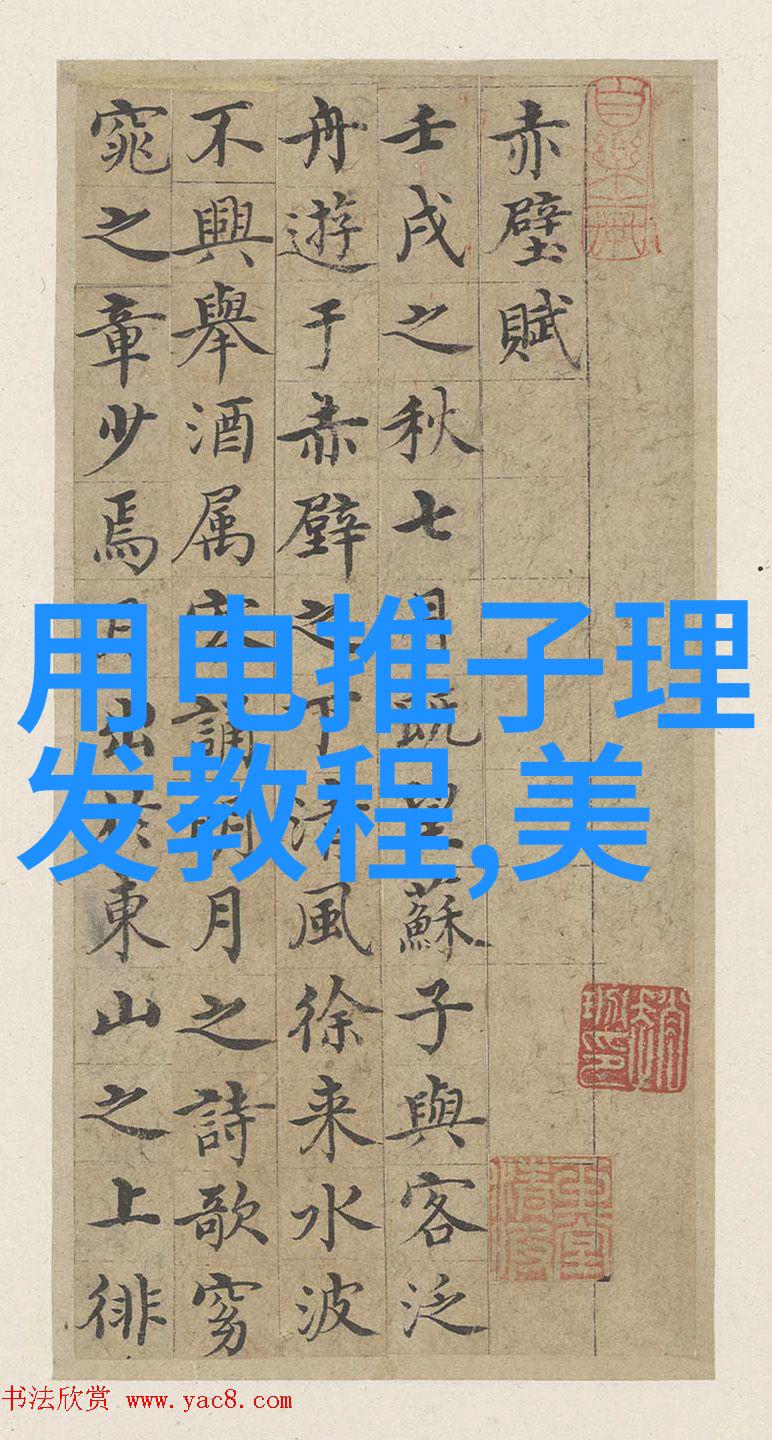 赤壁賦
壬戌之秋七月既望蘇子與客泛
舟遊于赤壁之下清風徐来水波
不興舉酒属客誦明月之詩歌窈
窕之章少焉月出於東山之上徘
用电推子理
发教程,美
书法欣赏 www.yac8.com